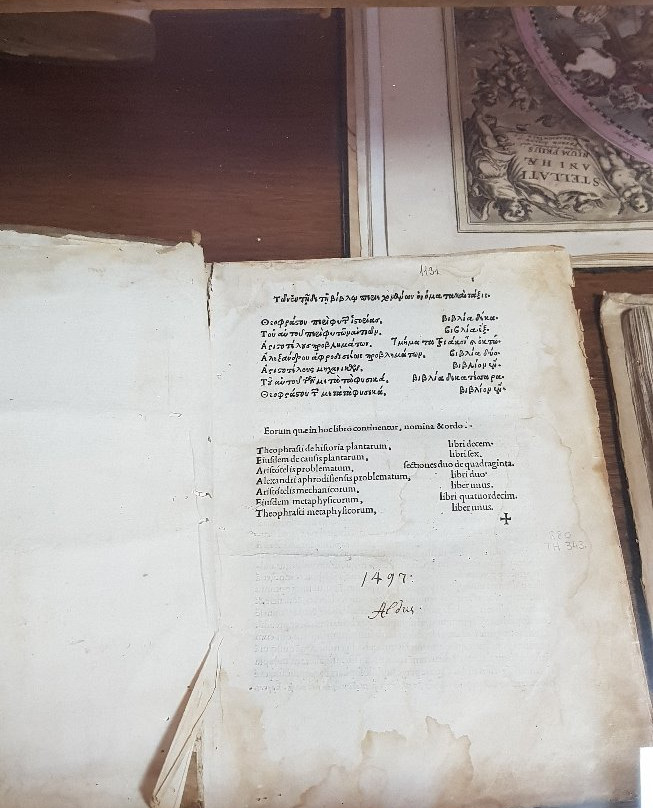 1131
Τῶν ἐν τῇδε τῇ βίβλῳ περιεχομένων ὀνόματα καὶ τάξις.
Θεοφράστου περὶ φυτῶν ἱστορίας. βιβλία δέκα.
Τοῦ αὐτοῦ περὶ φυτῶν αἰτιῶν. βιβλία ἕξ.
Ἀριστοτέλους προβλημάτων. τμήματα
Ἀλεξάνδρου ἀφροδισιέως προβλημάτων. βιβλία δύο.
Ἀριστοτέλους μηχανικῶν. βιβλίον ἕν.
Τοῦ αὐτοῦ τῶν μετὰ τὰ φυσικά. βιβλία δεκατέσσαρα.
Θεοφράστου τῶν μετὰ τὰ φυσικά. βιβλίον ἕν.
Eorum quæ in hoc libro continentur, nomina & ordo.
Theophrasti de historia plantarum, libri decem.
Eiusdem de causis plantarum, libri sex.
Aristotelis problematum, sectiones duo de quadraginta.
Alexandri aphrodisiensis problematum, libri duo.
Aristotelis mechanicorum, liber unus.
Eiusdem metaphysicorum, libri quatuordecim.
Theophrasti metaphysicorum, liber unus.
1497:
Aldus.
880
TH 343.
STELLATI
ANI HÆ
RIUM PRIUS